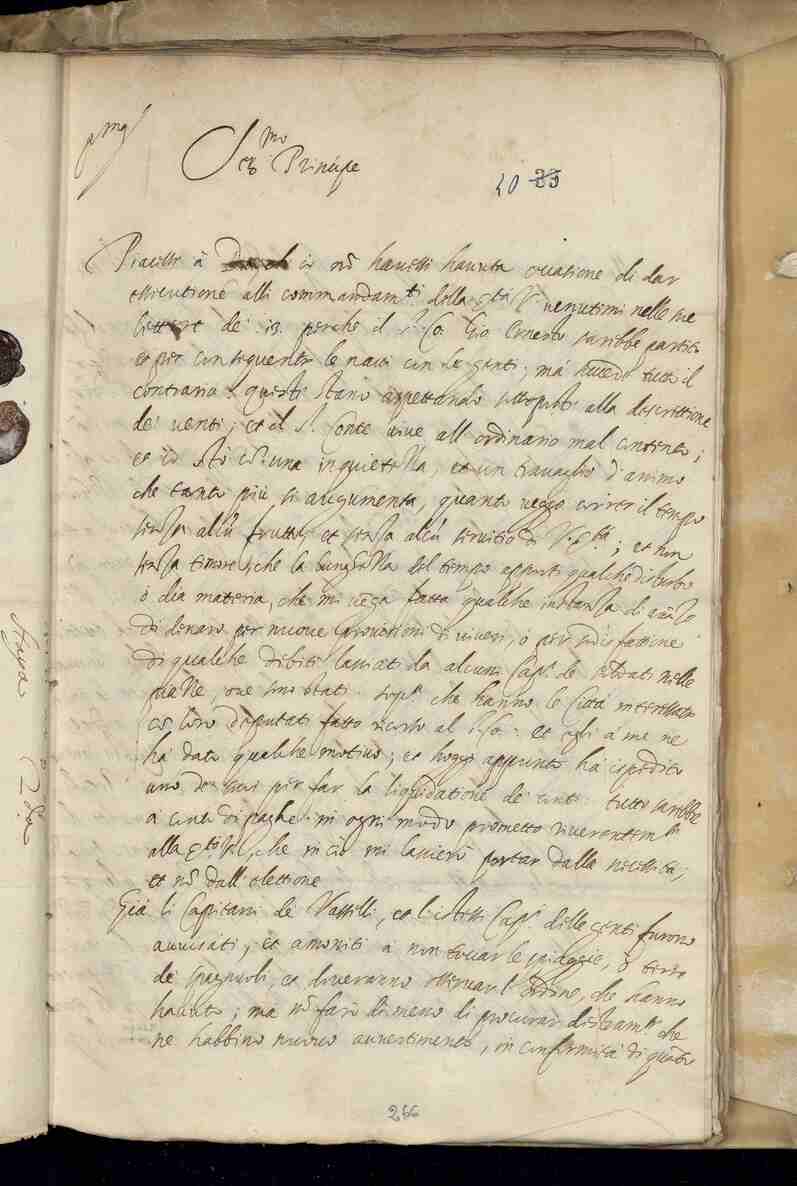 p.ma
Ser.mo Principe
40 33
Piacesse à Dio ch io nõ havessi havuta occasione di dar
essecutione alli commandam.ti della S.tà V. venutimi nelle sue
lettere de 13. perche il S. Co. Gio Ernesto sarebbe partito
et per conseguente le navi con le genti; mà succede tutto il
contrario questi stano aspettando sottoposti alla descrittione
dei venti; et il S. Conte vive all ordinario mal contento;
et io stò cõ una inquietezza, et un travaglio d'animo
che tanto più si augumenta, quanto veggo correr il tempo
senza alcũ frutto, et senza alcũ servitio di V. S.tà; et non
senza timore, che la lunghezza del tempo apporti qualche disturbo
ò dia materia, che mi vẽga fatta qualche instanza di
di denaro per nuove provisioni di viveri, ò per sodisfattione
di qualche debiti lasciati da alcuni Cap.i de soldati nelle
piazze, ove sono stati. sop.a che hanno le Città interessate
cõ loro deputati fatto ricorso al S. Co. et egli à me ne
hà dato qualche motivo; et hoggi appunto hà espedito
uno de suoi per far la liquidatione de conti. tutto sarebbe
a conto di paghe. in ogni modo prometto riverentem.te
alla S.tà V., che in ciò mi lascierò portar dalla necessità;
et nõ dall'elettione
Già li Capitani de Vasselli, et l'istessi Cap.i delle genti furono
avvisati, et amoniti à non toccar le spiaggie, ò terre
de Spagnuoli, et doveranno osservar l'ordine, che hanno
havuto; ma nõ farò di meno di procurar destram.te che
ne habbino nuovo avvertimento, in conformità di quãto
266
Haya